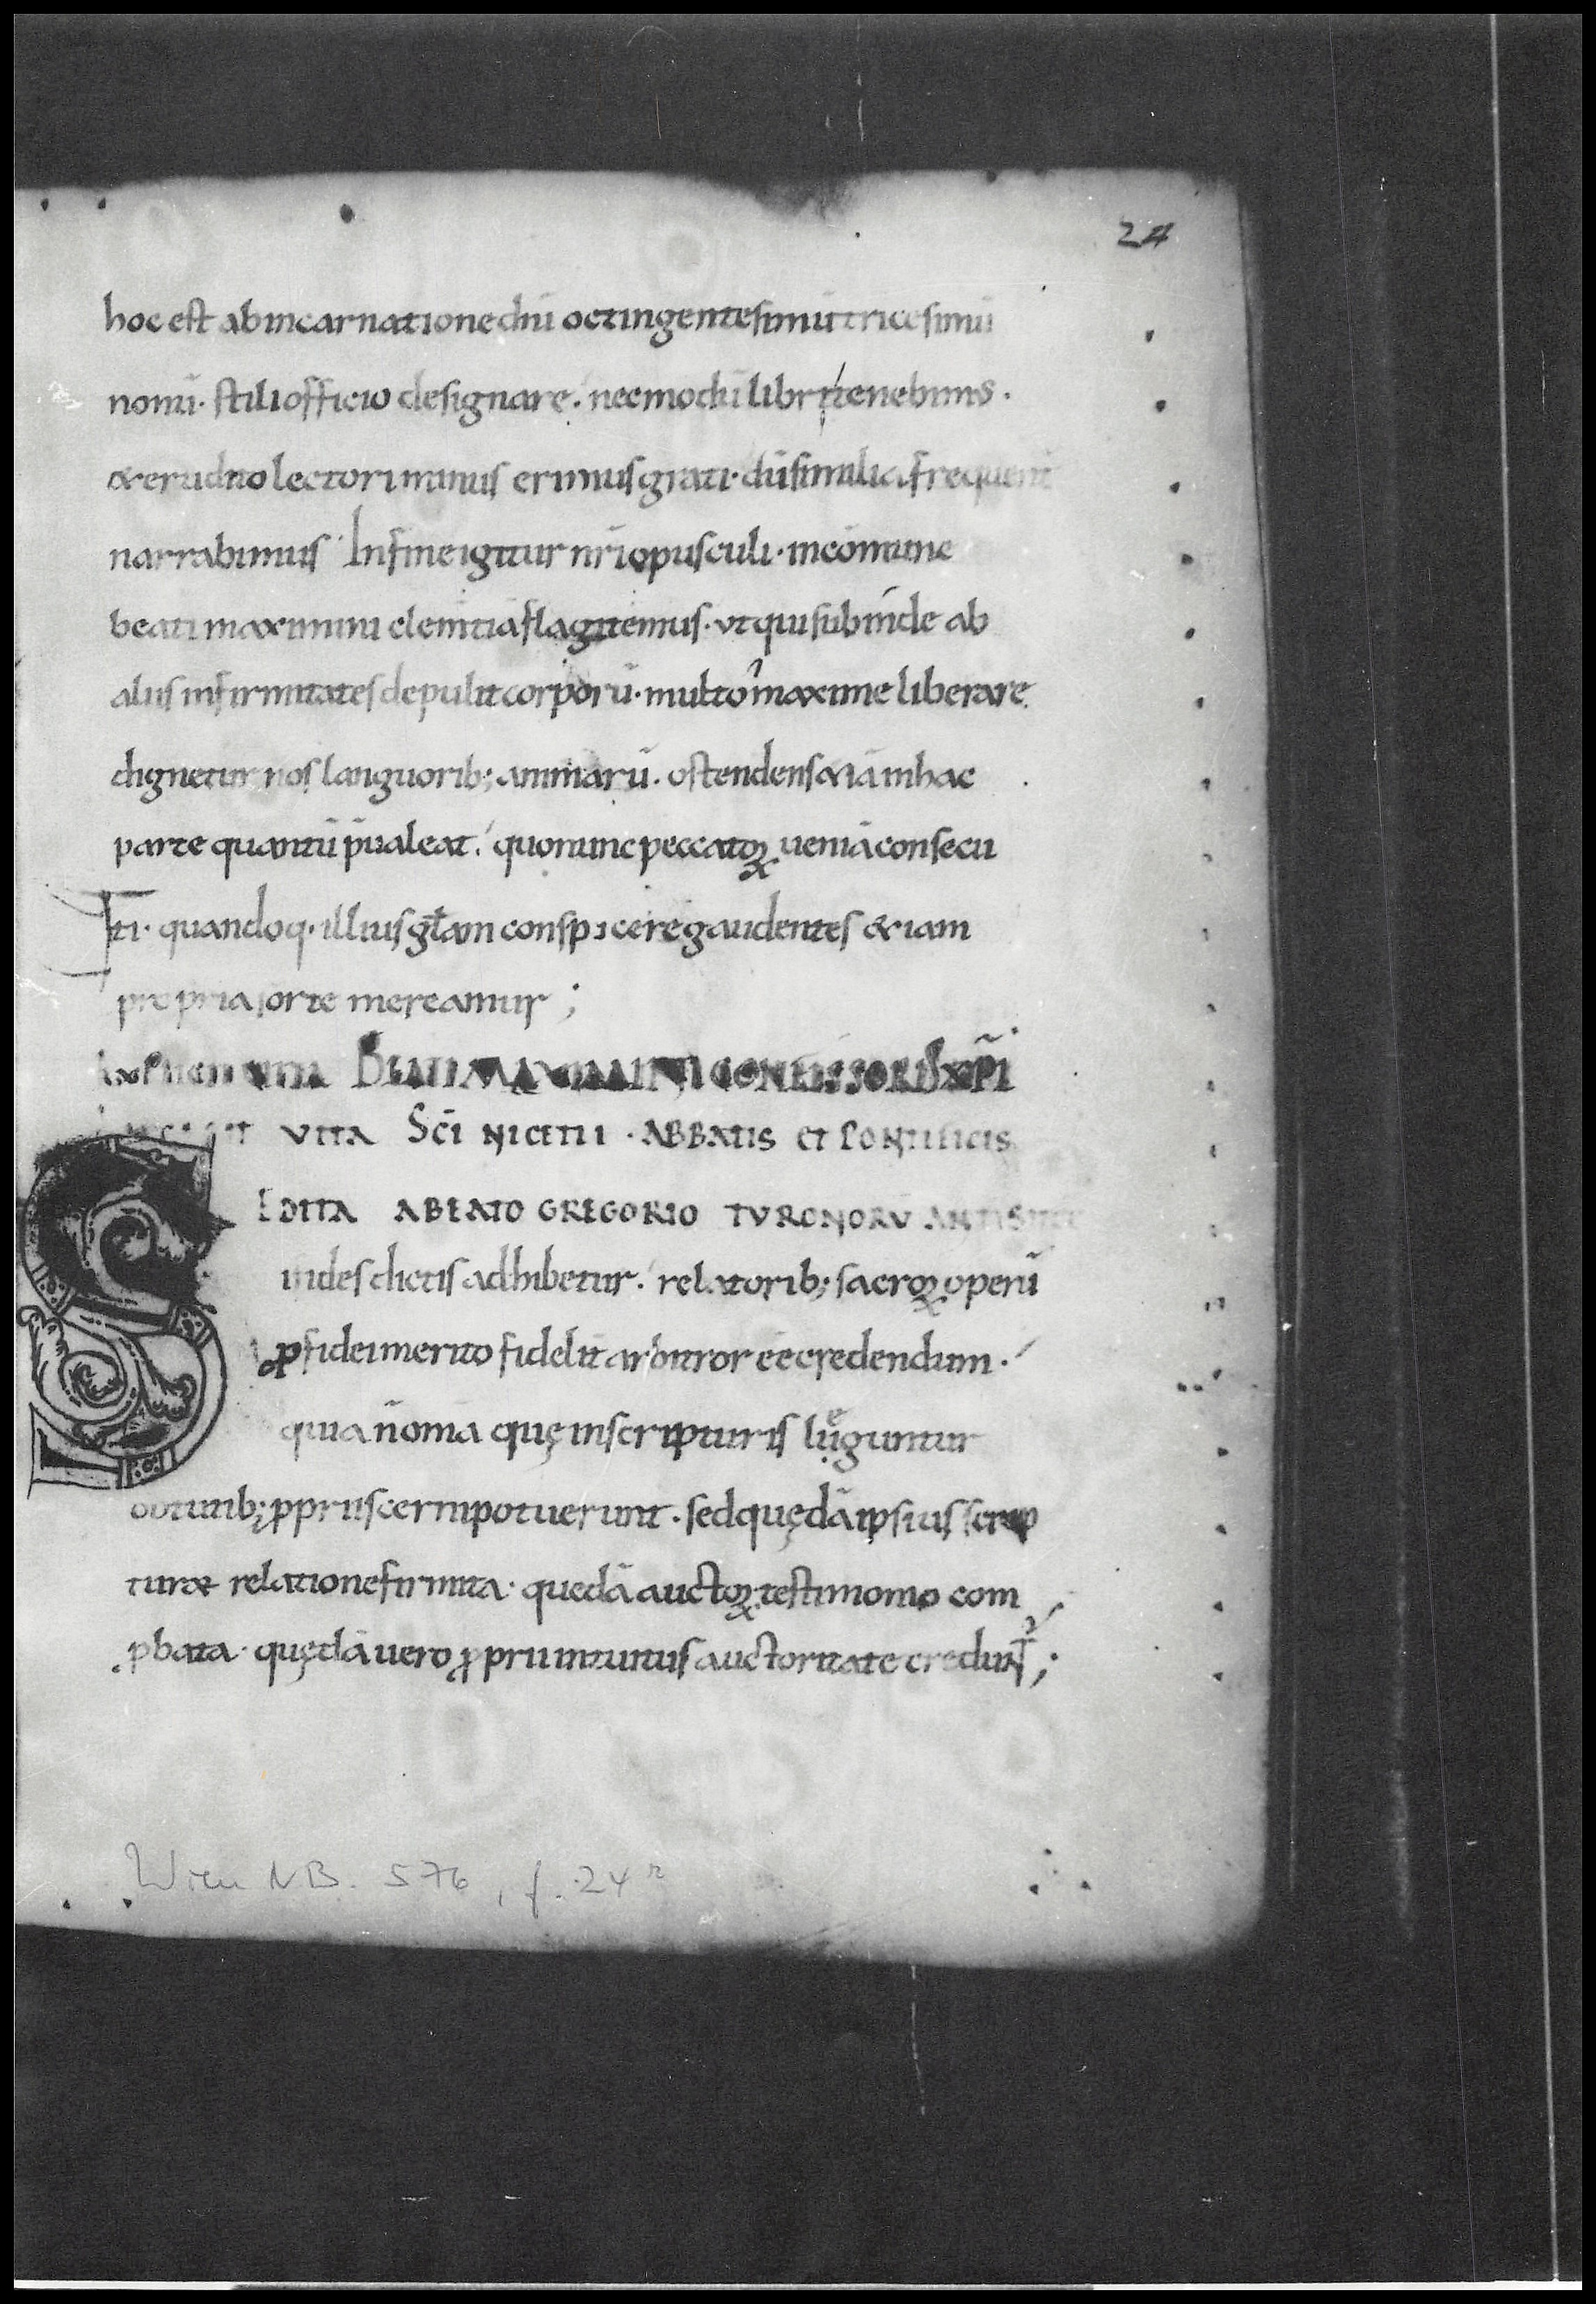 24
hoc est ab incarnatione dñi octingentesimũ tricesimũ
nonũ · stili officio designare · nec modũ libri tenebimus ·
& erudito lectori minus erimus grati · dũ similia frequent̃
narrabimus · In fine igitur nr̃i opusculi · in cõmune
beati maximini clem̃tiã flagitemus · ut qui subinde ab
aliis infirmitates depulit corporũ · multo maxime liberare
dignetur nos languorib; animarũ · ostendens &iã in hac
parte quantũ p̃ualeat · quo nunc peccatoꝝ ueniã consecu
ti · quandoq · illius gl̃am conspicere gaudentes & iam
propria sorte mereamur ;
Explicit vita BEATI MAXIMINI CONFESSORIS XP̃I
VITA SC̃I NICETII · ABBATIS ET PONTIFICIS
EDITA A BEATO GREGORIO TVRONORV̄ ANTISTITE
i fides dictis adhibetur · relatorib; sacroꝝ operũ
ꝓ fidei merito fidelit̃ arbitror eẽ credendum ·
quia ñ om̃a quę in scripturis leguntur
obtutib; ꝓpriis cerni potuerunt · sed quędã ipsius scrip
turæ relatione firmita · quedã auctoꝝ testimonio com
ꝓbata · quędã uero ꝓprii intuitus auctoritate credunt̃ ;
Wien NB. 576, f. 24 r